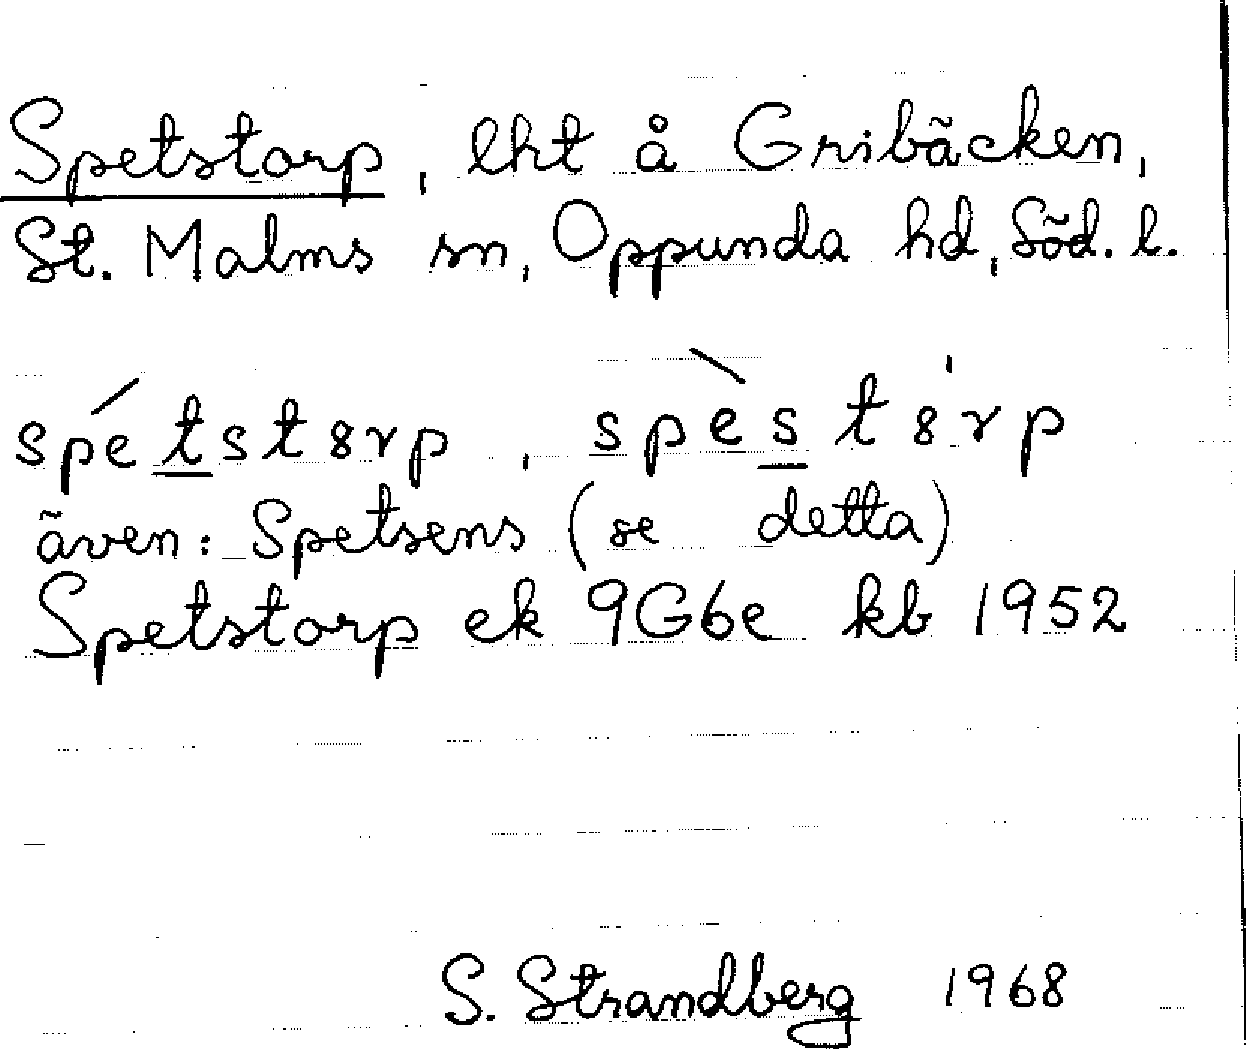 Spetstorp, lht å Gribäcken,
St. Malms sn, Oppunda hd, Söd. l.
spétst8rp, spèst8'rp
även: Spetsens (se detta)
Spetstorp ek 9G6e kb 1952
S. Strandberg 1968